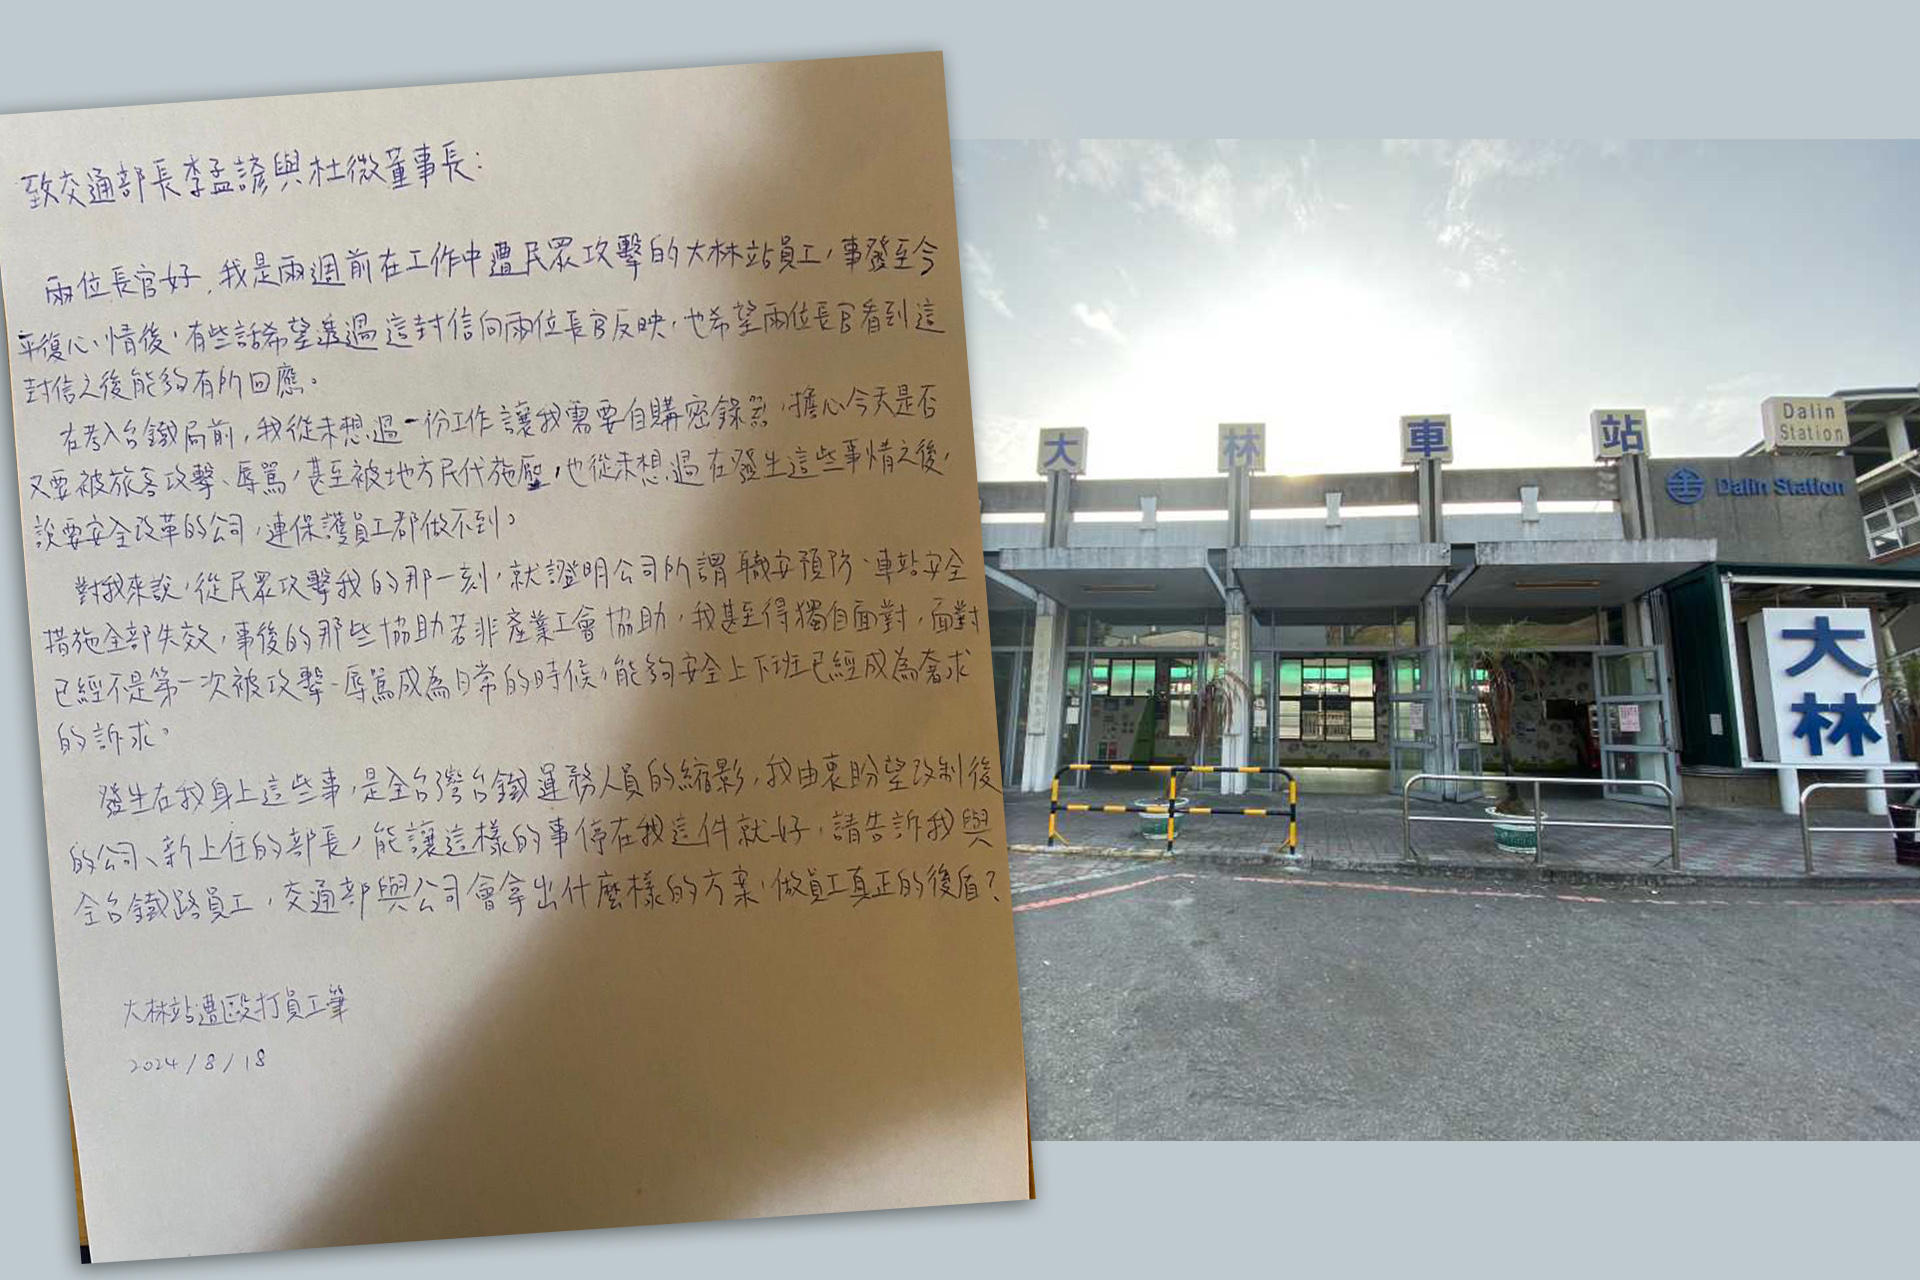 致交通部長李孟諺與杜微董事長:
兩位長官好,我是兩週前在工作中遭民眾攻擊的大林站員工,事發至今
平復心情後,有些話希望透過這封信向兩位長官反映,也希望兩位長官看到這
封信之後能夠有所回應。
在考入台鐵局前,我從未想過一份工作讓我需要自購密錄器,擔心今天是否
又要被旅客攻擊、辱罵,甚至被地方民代施壓,也從未想過在發生這些事情之後,
說要安全改革的公司,連保護員工都做不到。
對我來說,從民眾攻擊我的那一刻,就證明公司所謂職安預防、車站安全
措施全部失效,事後的那些協助若非產業工會協助,我甚至得獨自面對,面對
已經不是第一次被攻擊、辱罵成為日常的時候,能夠安全上下班已經成為奢求
的訴求。
發生在我身上這些事,是全台灣台鐵運務人員的縮影,我由衷盼望改制後
的公司、新上任的部長,能讓這樣的事停在我這件就好,請告訴我與
全台鐵路員工,交通部與公司會拿出什麼樣的方案,做員工真正的後盾?
大林站遭毆打員工筆
2024/8/18
大林車站
Dalin
Station
Dalin Station
大林